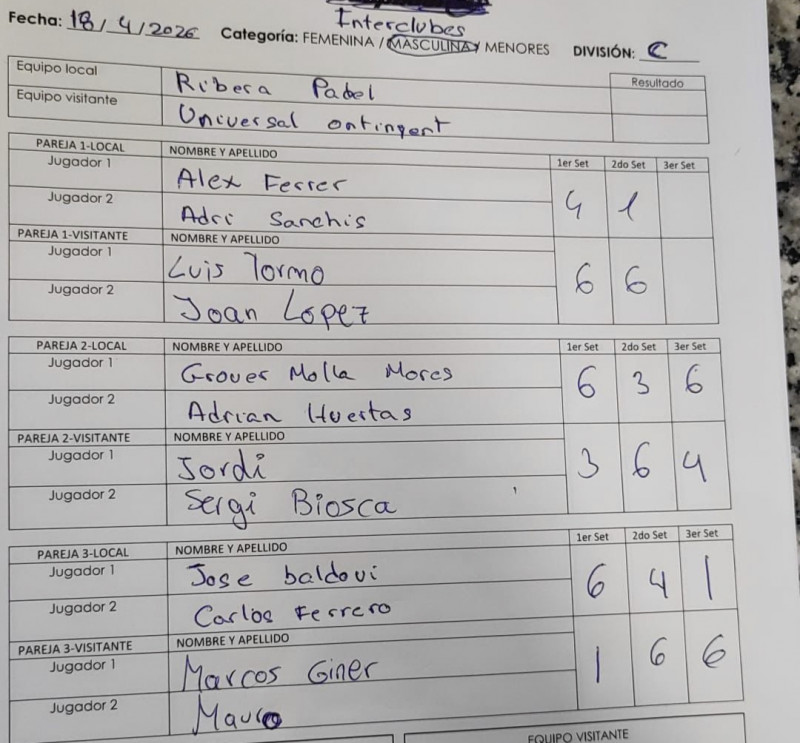 Interclubes
Fecha: 18/4/2026 Categoría: FEMENINA / MASCULINA / MENORES DIVISIÓN: C
Equipo local Ribera Padel Resultado
Equipo visitante Universal ontinyent
PAREJA 1-LOCAL NOMBRE Y APELLIDO 1er Set 2do Set 3er Set
Jugador 1 Alex Ferrer
Jugador 2 Adri Sanchis
4 1
PAREJA 1-VISITANTE NOMBRE Y APELLIDO
Jugador 1 Luis Tormo
Jugador 2 Joan Lopez
6 6
PAREJA 2-LOCAL NOMBRE Y APELLIDO 1er Set 2do Set 3er Set
Jugador 1 Grover Molla Mores
Jugador 2 Adrian Huertas
6 3 6
PAREJA 2-VISITANTE NOMBRE Y APELLIDO
Jugador 1 Jordi
Jugador 2 Sergi Biosca
3 6 4
PAREJA 3-LOCAL NOMBRE Y APELLIDO 1er Set 2do Set 3er Set
Jugador 1 Jose baldovi
Jugador 2 Carlos Ferrero
6 4 1
PAREJA 3-VISITANTE NOMBRE Y APELLIDO
Jugador 1 Marcos Giner
Jugador 2 Mauro
1 6 6
EQUIPO VISITANTE